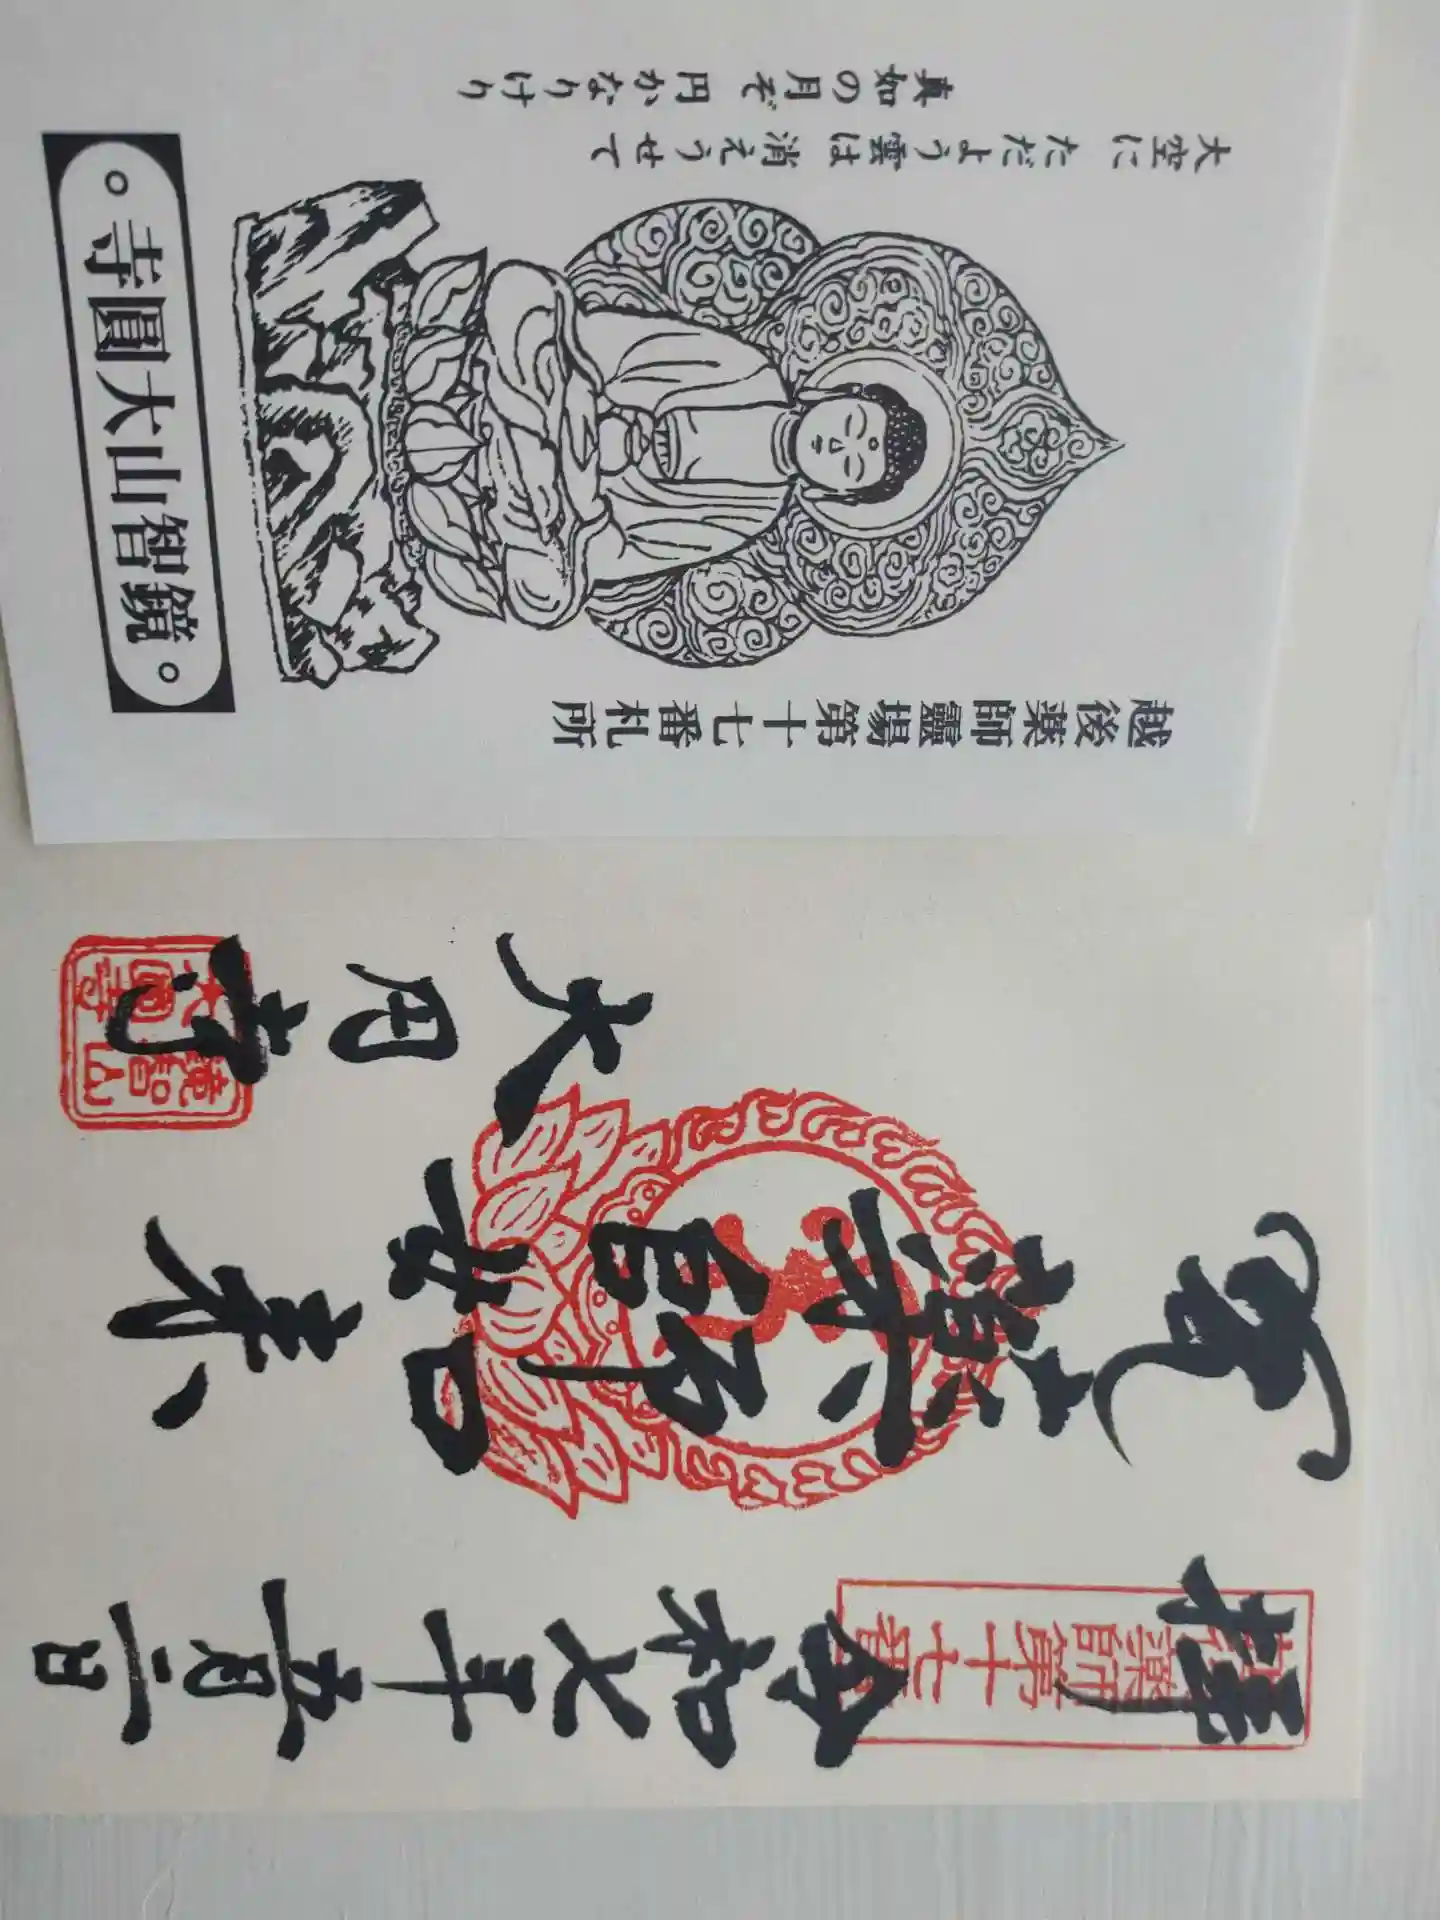 奉拝
越後薬師第十七番
令和七年五月二日
薬師如来
大円寺
鏡智山
大圓寺
越後薬師靈場第十七番札所
大空に ただよう雲は 消えうせて
真如の月ぞ 円かなりけり
鏡智山大圓寺